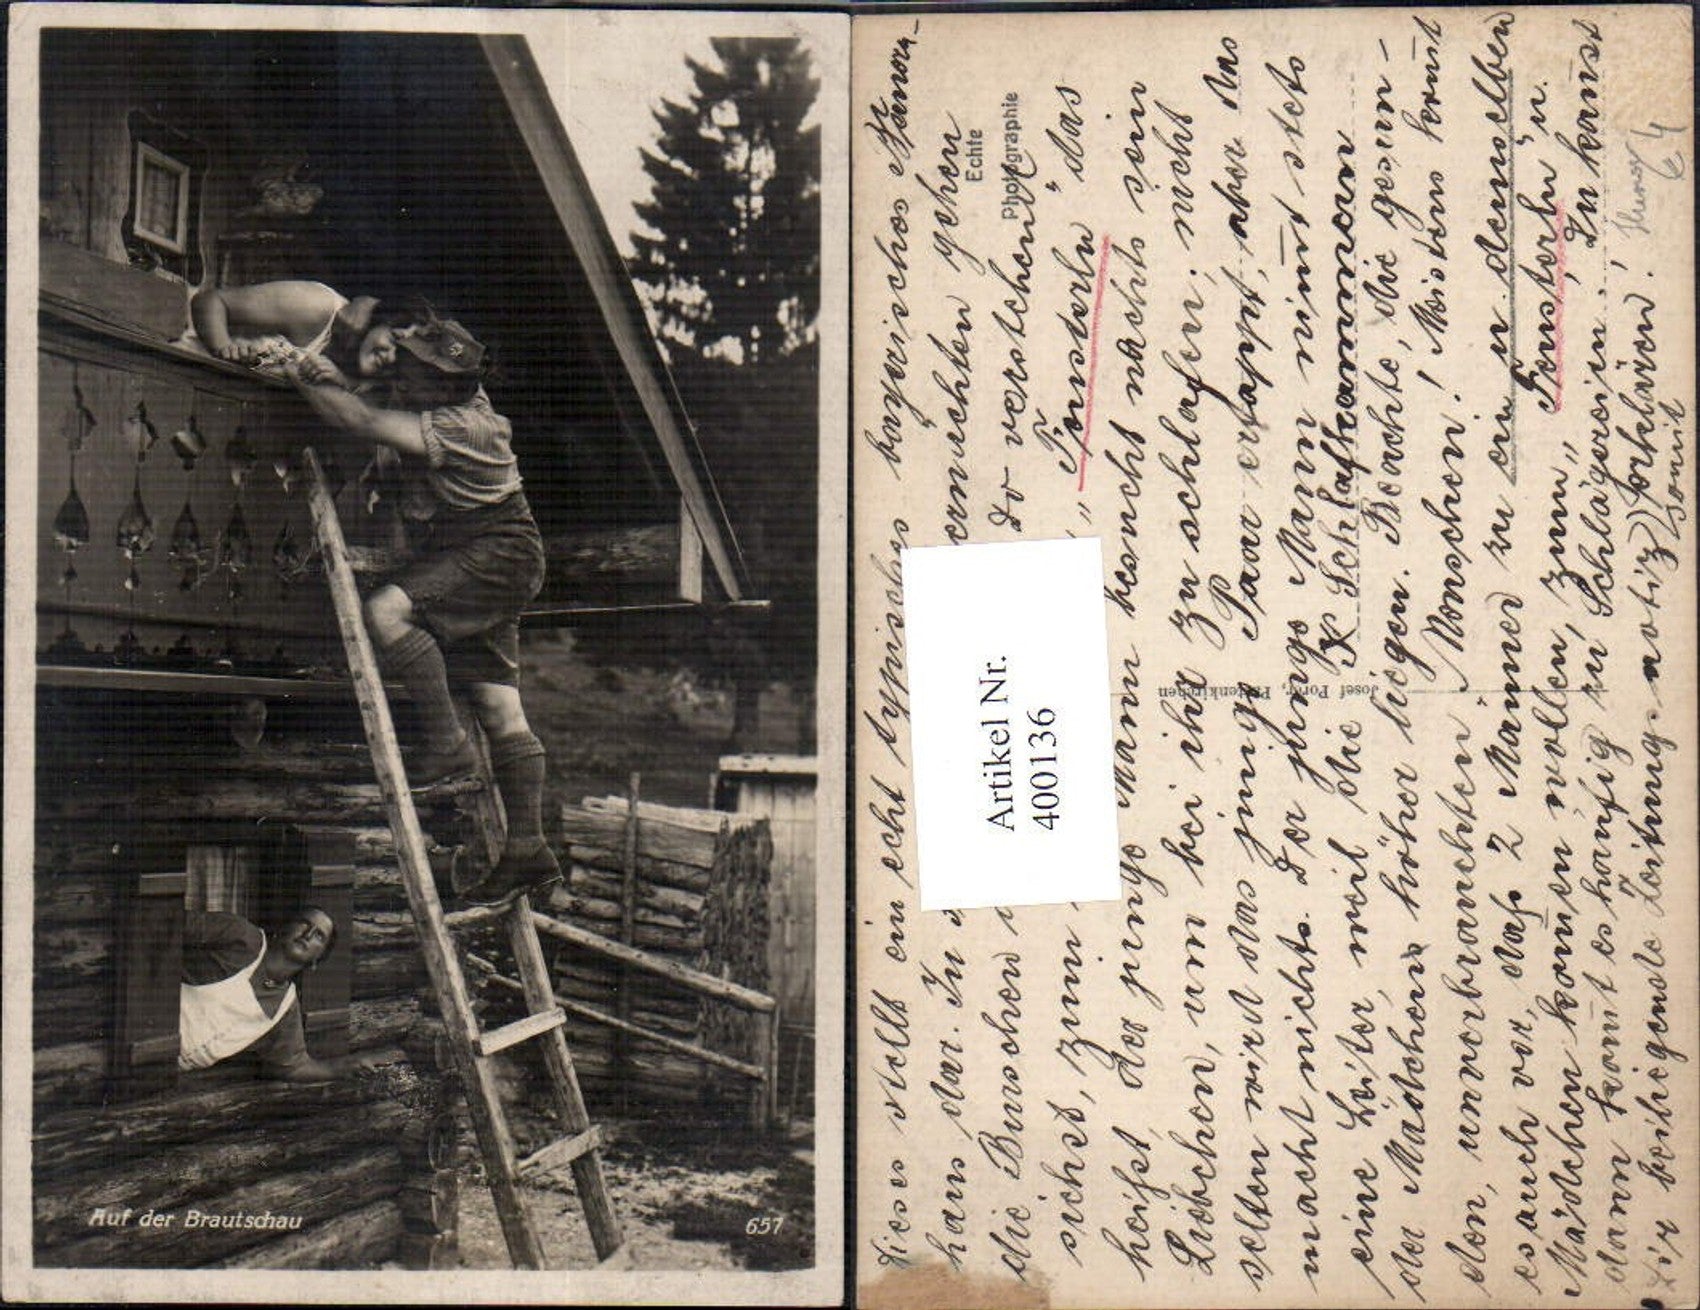 Auf der Brautschau
657
Dieses stellt ein echt typisches bayerisches Bauern-
haus dar. In d ernichten gehen
die Burschen wie Du verstehend
siehst, zum „Fensterln" das
heißt, der junge Mann besucht nachts sein
Liebchen, um bei ihr zu schlafen; nicht
selten wird das junge Paar ertappt, aber das
macht nichts. Der junge Mann nimt stets
eine Leiter, weil die Schlafkammern
der Mädchen höher liegen. Beachte, die gesun-
den, unverbrauchten Menschen! Meistens komt
es auch vor, daß 2 Männer zu ein u. demselben
Mädchen komen wollen, zum „Fensterln" u.
dann komt es häufig zu Schlägereien. Du kannst
Dir beiliegende Zeitungsnotiz somit erklären!
Echte
Photographie
Josef Poray, Partenkirchen
Artikel Nr.
400136